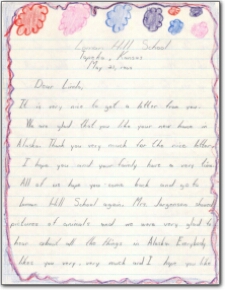 Lowman Hill School
Topeka, Kansas
May
Dear Linda,
It is very nice to get a letter from you.
We are glad that you like your new home in
Alaska. Thank you very much for the nice letter.
I hope you and your family have a very
All of us hope you come back and go to
Lowman Hill School again. Mrs. Jorgensen showed
pictures of animals and we were very glad to
hear about all the things in Alaska. Everybody
likes you very, very much and I hope you like